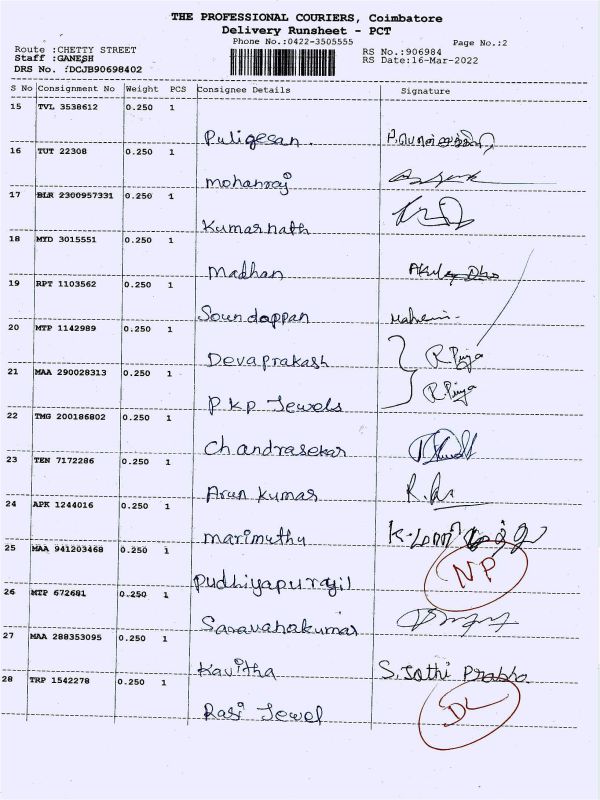 THE PROFESSIONAL COURIERS, Coimbatore
Delivery Runsheet - PCT
Phone No.:0422-3505555
Page No.:2
Route :CHETTY STREET
RS No.:906984
Staff :GANESH
RS Date:16-Mar-2022
DRS No. :DCJB90698402
S No Consignment No Weight PCS Consignee Details Signature
15 TVL 3538612 0.250 1
Puligesan.
16 TUT 22308 0.250 1
mohanraj
17 BLR 2300957331 0.250 1
Kumarnath
18 MYD 3015551 0.250 1
Madhan
19 RPT 1103562 0.250 1
Soundappan
20 MTP 1142989 0.250 1
Devaprakash R. Priya
21 MAA 290028313 0.250 1
PKP Jewels R. Priya
22 TMG 200186802 0.250 1
Chandrasekar
23 TEN 7172286 0.250 1
Arun Kumar
24 APK 1244016 0.250 1
Marimuthu
25 MAA 941203468 0.250 1
Pudhiyapurayil NP
26 MTP 672681 0.250 1
Saravanakumar
27 MAA 288353095 0.250 1
Kavitha S. Jothi Prabha
28 TRP 1542278 0.250 1
Rasi Jewel DL